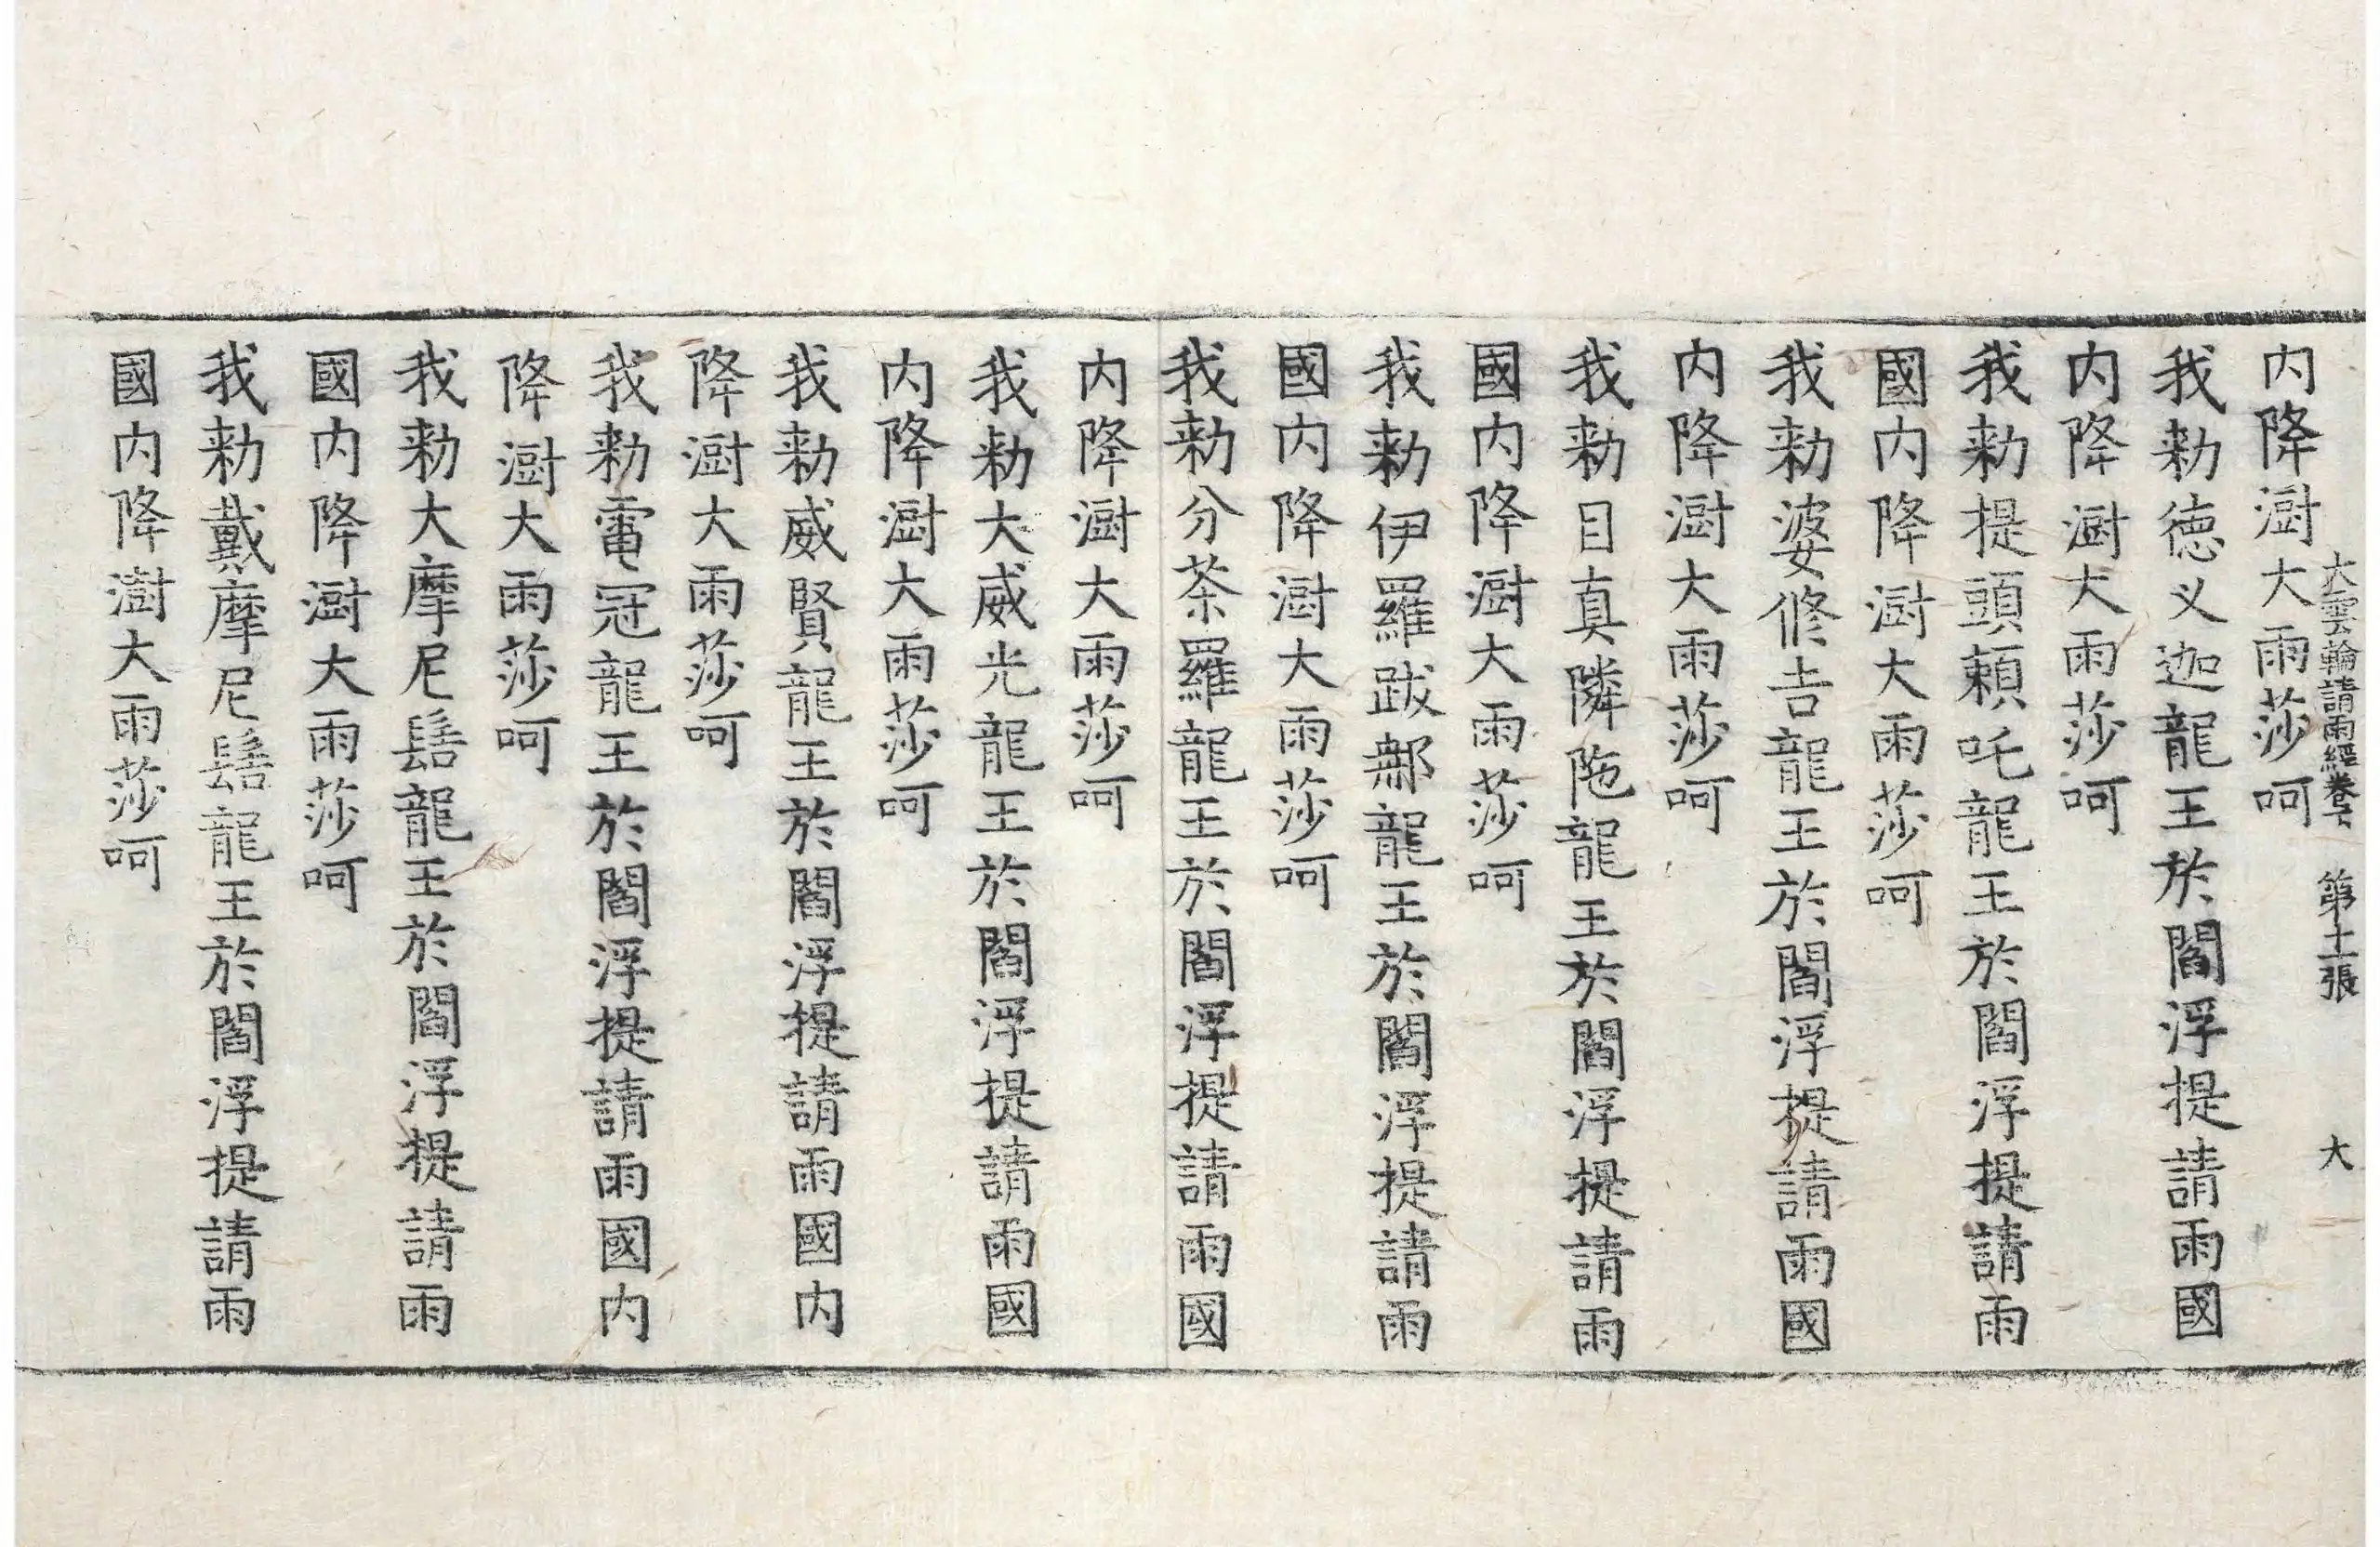 大雲輪請雨經卷下 第十二張 大
内降澍大雨莎呵
我勑德义迦龍王於閻浮提請雨國
内降澍大雨莎呵
我勑提頭賴吒龍王於閻浮提請雨
國内降澍大雨莎呵
我勑婆修吉龍王於閻浮提請雨國
内降澍大雨莎呵
我勑目真隣陁龍王於閻浮提請雨
國内降澍大雨莎呵
我勑伊羅跋郍龍王於閻浮提請雨
國内降澍大雨莎呵
我勑分茶羅龍王於閻浮提請雨國
内降澍大雨莎呵
我勑大威光龍王於閻浮提請雨國
内降澍大雨莎呵
我勑威賢龍王於閻浮提請雨國内
降澍大雨莎呵
我勑電冠龍王於閻浮提請雨國内
降澍大雨莎呵
我勑大摩尼髻龍王於閻浮提請雨
國内降澍大雨莎呵
我勑戴摩尼髻龍王於閻浮提請雨
國内降澍大雨莎呵